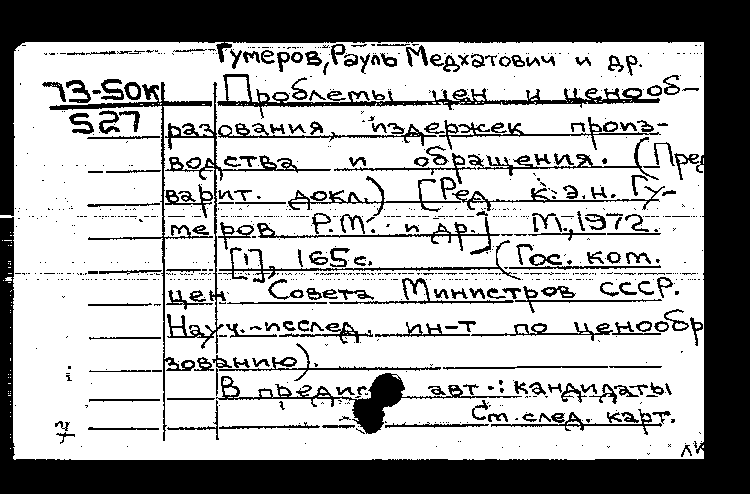 Гумеров, Рауль Медхатович и др.
73-50к Проблемы цен и ценооб-
527 разования, издержек произ-
водства и обращения. (Пред
варит. докл.) [Ред. к.э.н. Гу-
меров Р.М. и др.] М., 1972.
[1], 165 с. (Гос. ком.
цен Совета Министров СССР.
Науч.-исслед. ин-т по ценообр
зованию).
В предис авт.: кандидаты
См. след. карт.